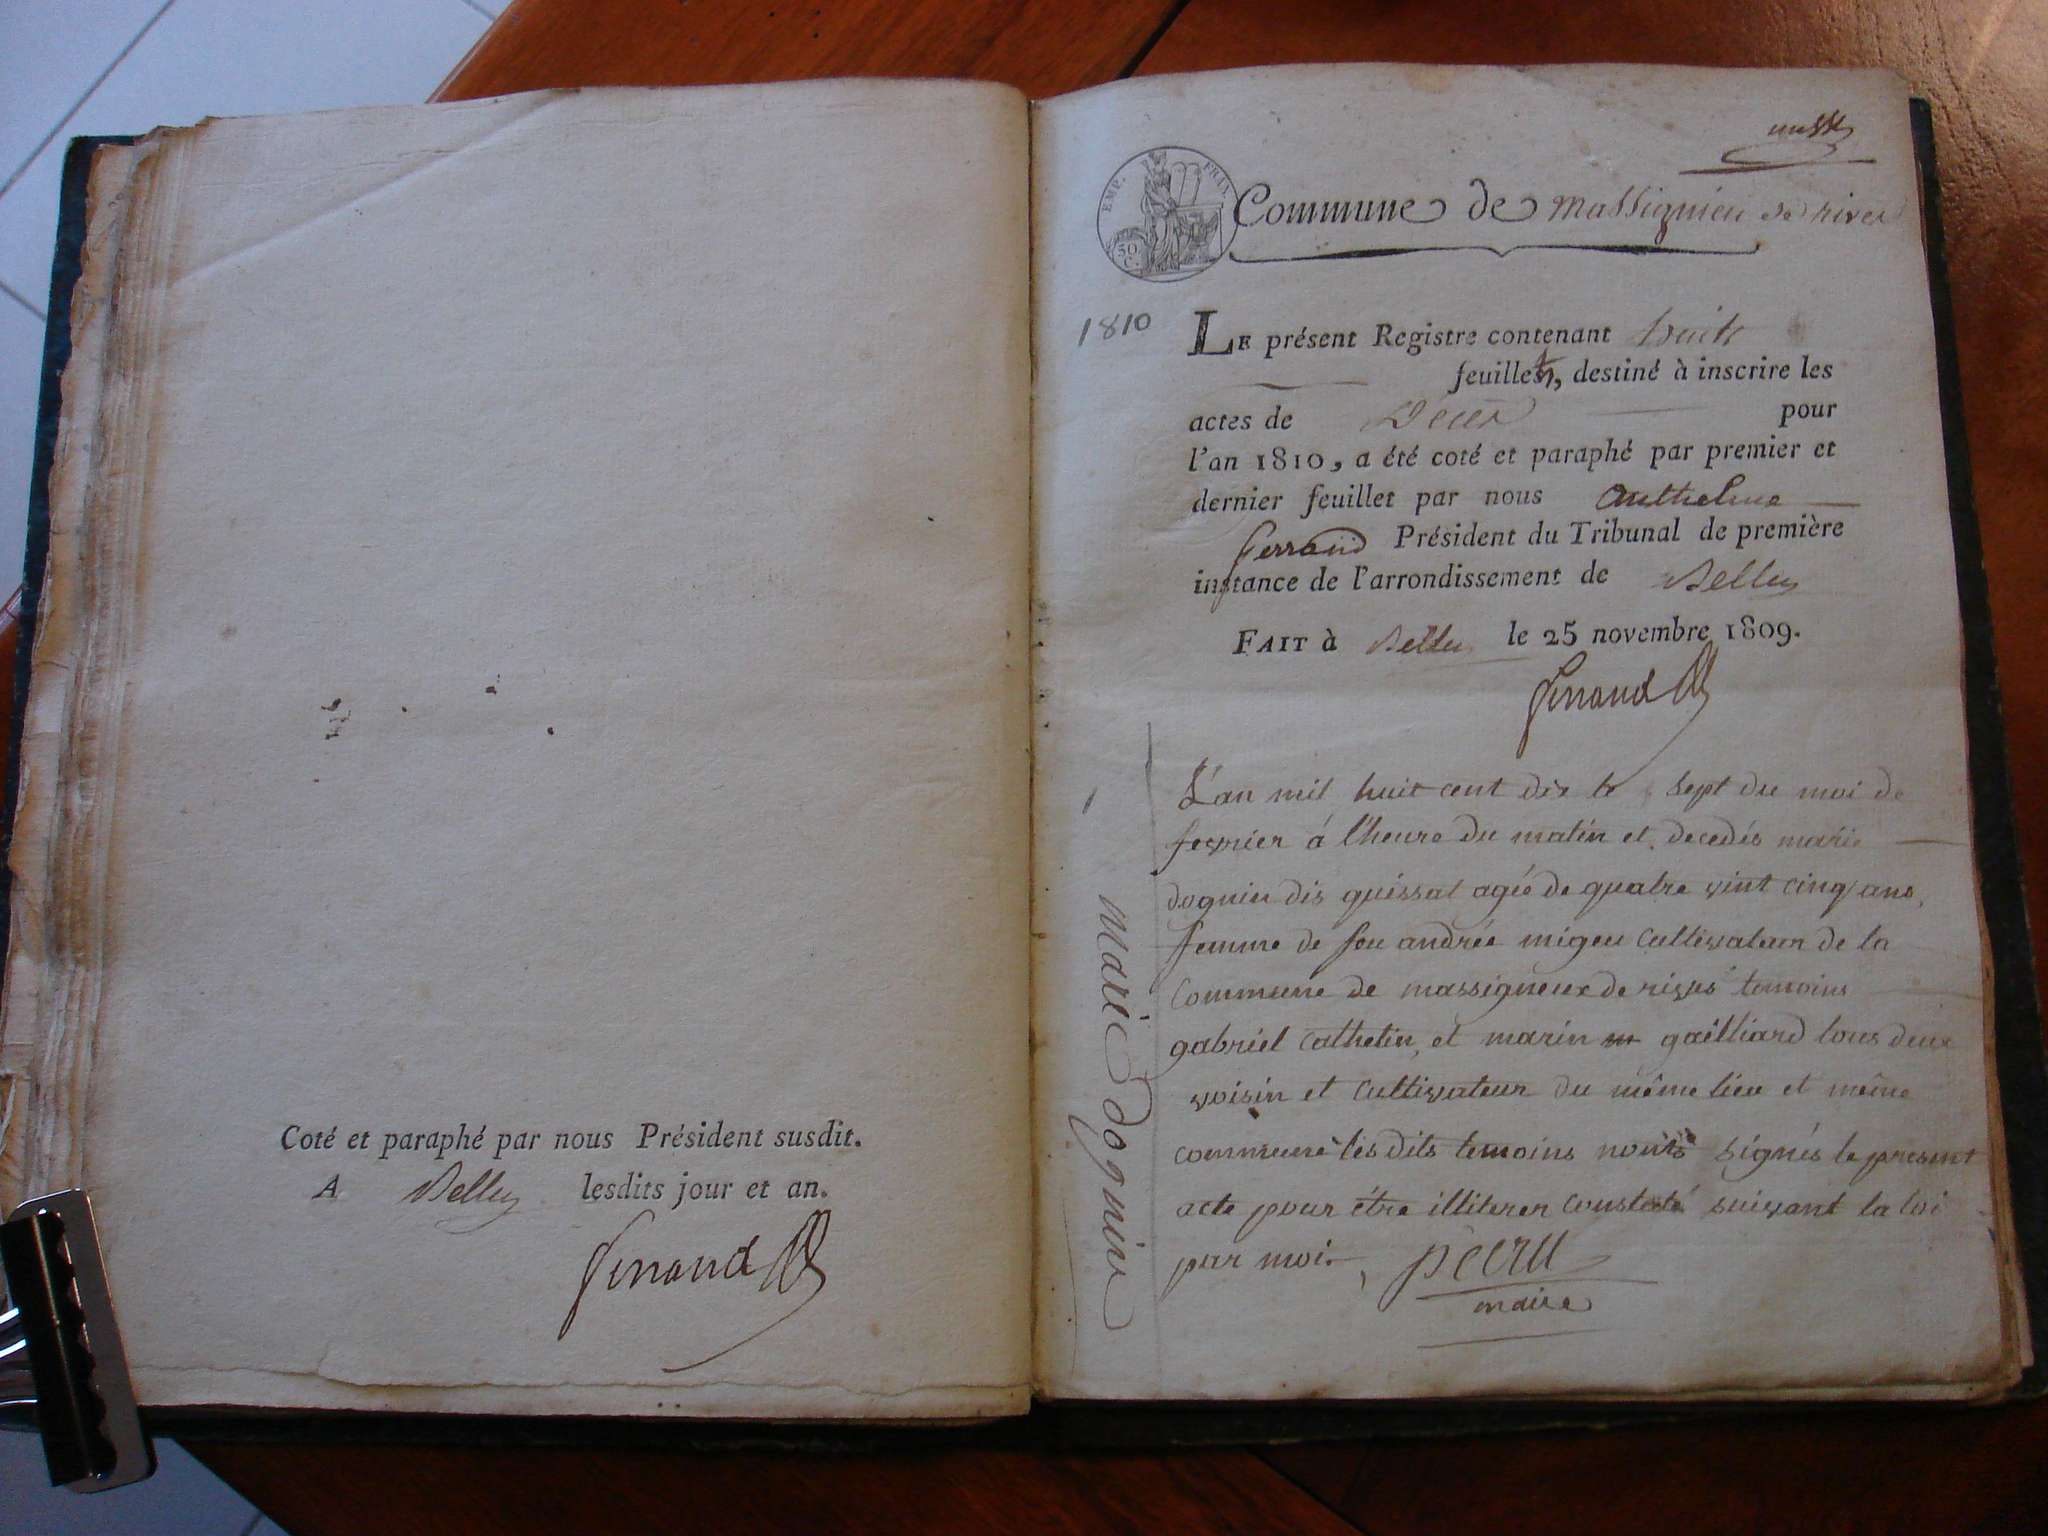 Coté et paraphé par nous Président susdit.
A Belley lesdits jour et an.
Ferrand
EMP. FRAN.
50 C.
Commune de massignieu de rives
1810
LE présent Registre contenant huit
feuillets, destiné à inscrire les
actes de Décès pour
l'an 1810, a été coté et paraphé par premier et
dernier feuillet par nous Anthelme
Ferrand Président du Tribunal de première
instance de l'arrondissement de Belley
FAIT à Belley le 25 novembre 1809.
Ferrand
marie dognin
L'an mil huit cent dix le sept du moi de
fevrier à l'heure du matin et decedés marie
dognin dis guissat agée de quatre vint cinq ans,
femme de feu andrée migeu cultivateur de la
commune de massigneux de rives temoins
gabriel Cathelin, et marin gailliard tous deux
voisin et cultivateur du même lieu et même
commune lesdits temoins nont signés le present
acte pour être illiterer constaté suivant la loi
par moi, pecru
maire